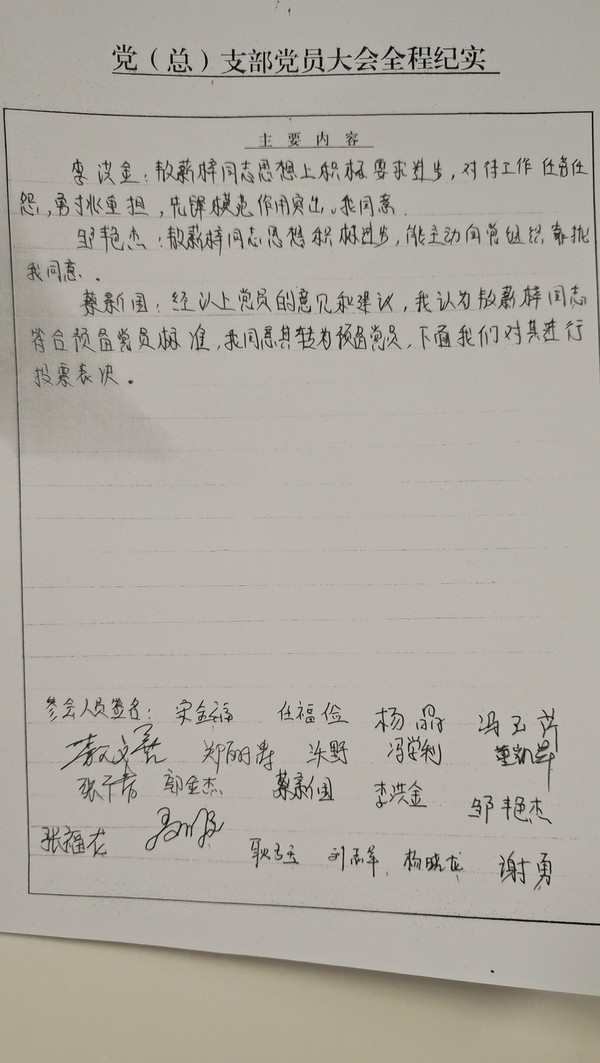 党（总）支部党员大会全程纪实
主要内容
李洪金：敖蕲梓同志思想上积极要求进步，对待工作任劳任
怨，勇挑重担，先锋模范作用突出。我同意。
邹艳杰：敖蕲梓同志思想积极进步，能主动向党组织靠拢
我同意。
蔡新国：经以上党员的意见和建议，我认为敖蕲梓同志
符合预备党员标准，我同意其转为预备党员，下面我们对其进行
投票表决。
参会人员签名：宋金福 任福俭 杨晶 冯玉芹
郑丽涛 沃野 冯学利 董凯犇
郭金杰 蔡新国 李洪金 邹艳杰
张福友 刘志军 杨晓龙 谢勇